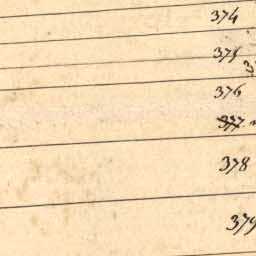 374
375
376
377
378
379